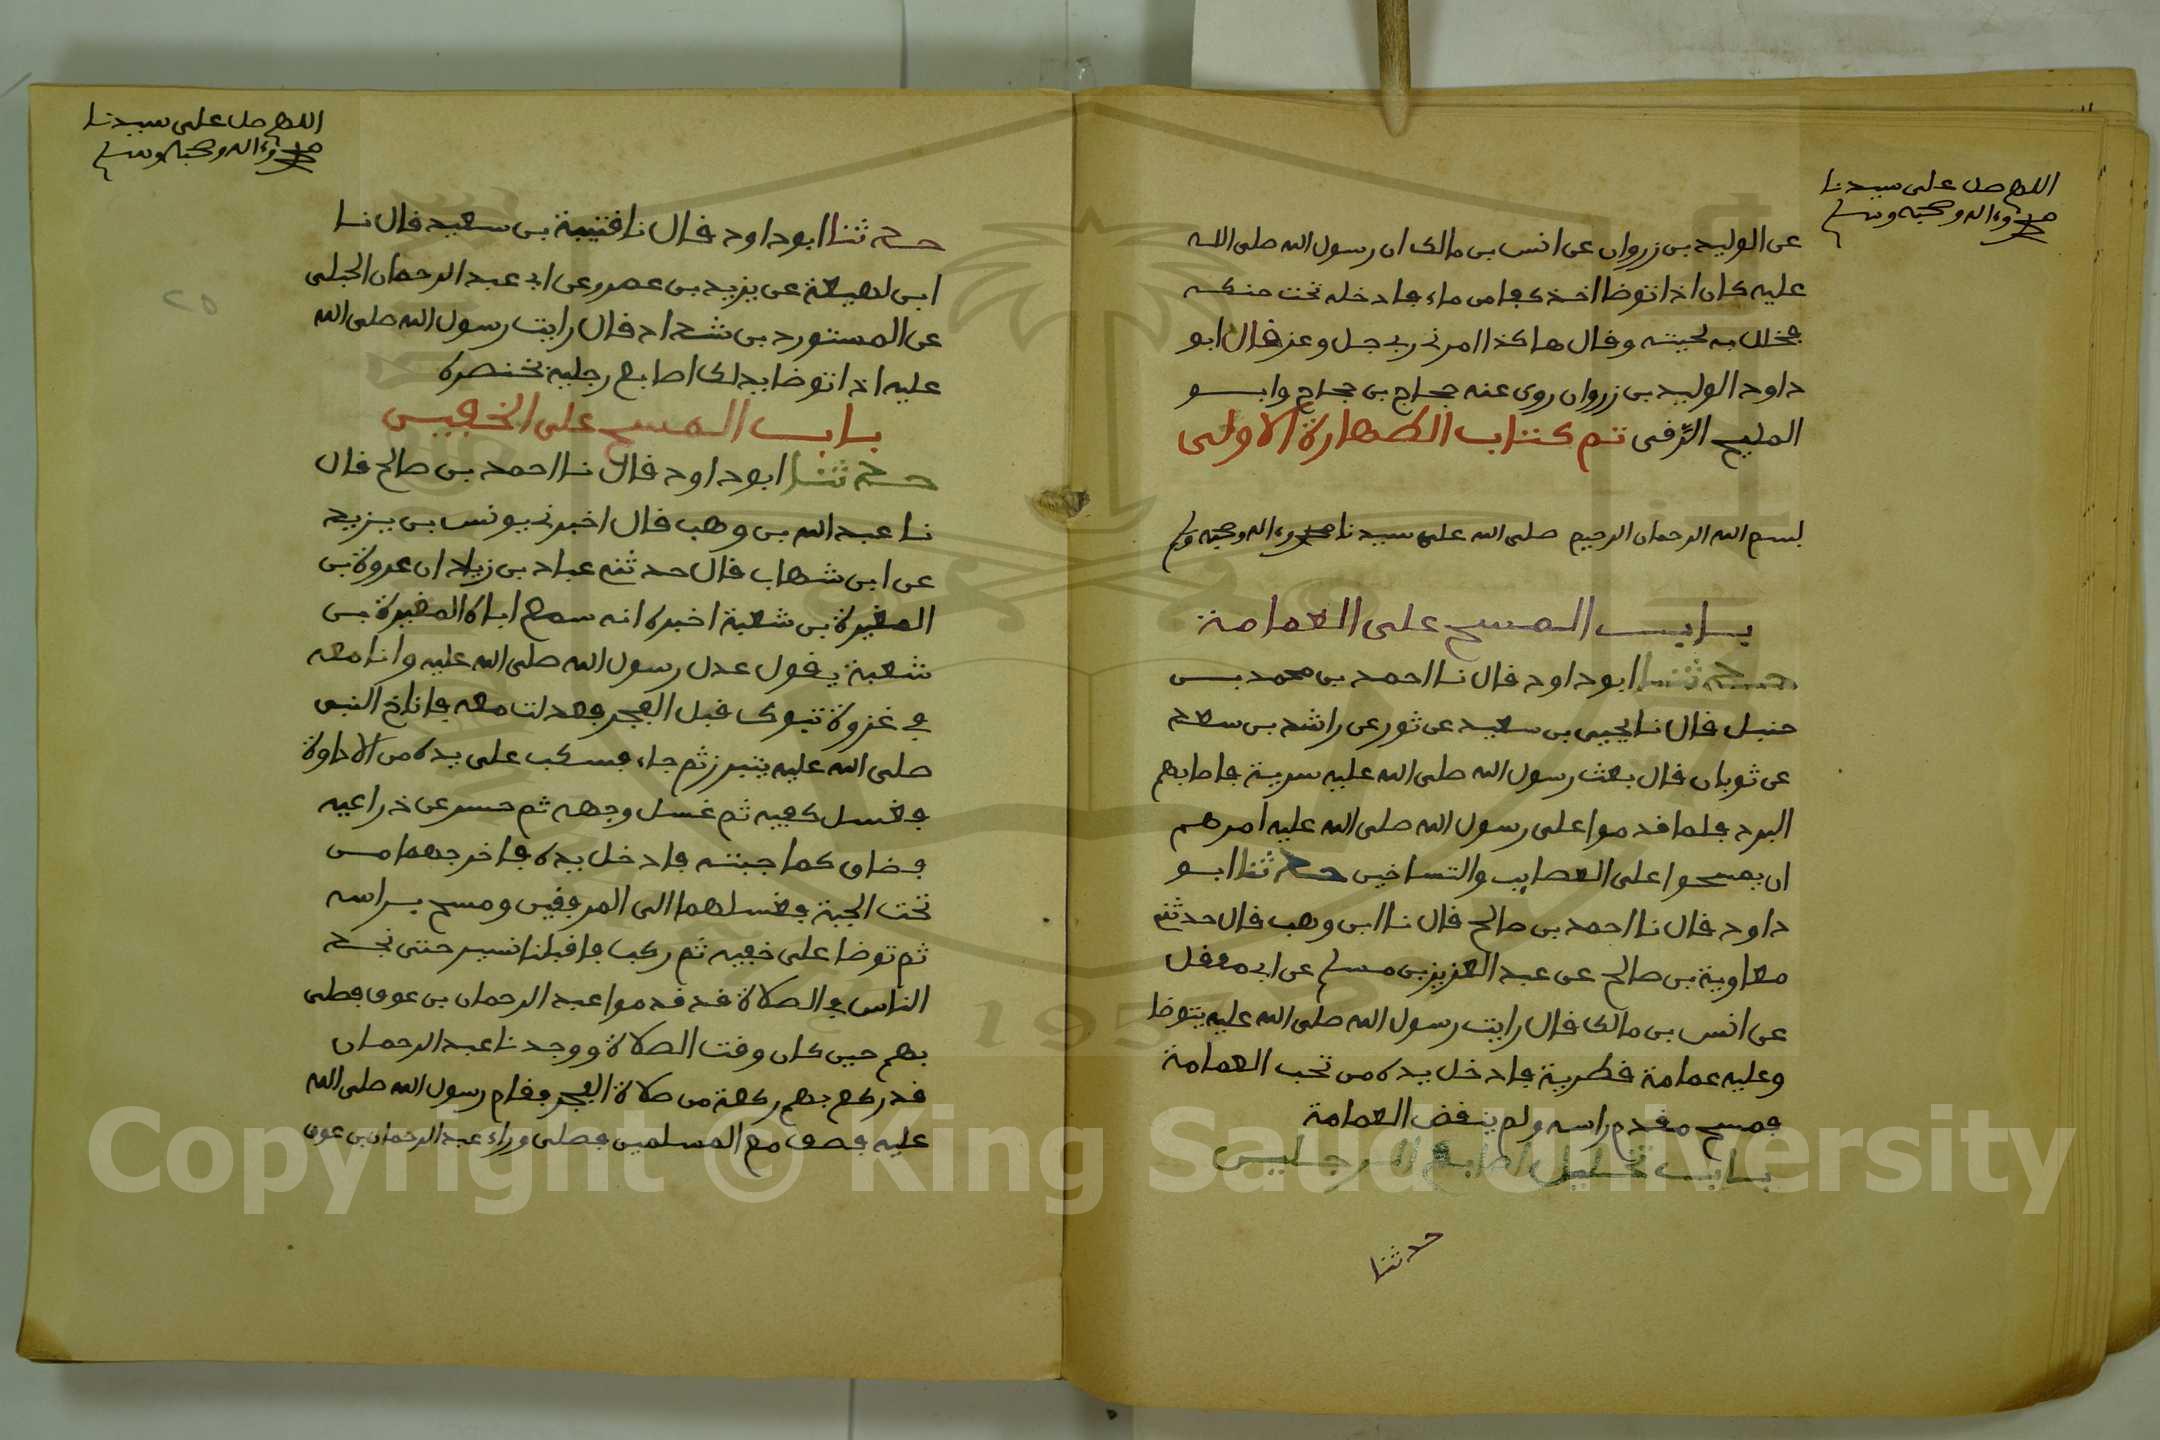 اللهم صل على سيدنا
محمد وءاله وصحبه وسلم
عن الوليد بن زروان عن انس بن مالك ان رسول الله صلى الله
عليه كان اذا توضا اخذ كفا من ماء فادخله تحت حنكه
فخلل به لحيته وقال هاكذا امرني ربي جل وعز قال ابو
داود الوليد بن زروان روى عنه حجاج بن حجاج وابو
المليح الرقى تم كتاب الطهارة الاولى
بسم الله الرحمان الرحيم صلى الله على سيدنا محمد وءاله وصحبه وسلم
باب المسح على العمامة
حدثنا ابو داود قال نا احمد بن محمد بن
حنبل قال نا يحيى بن سعيد عن ثور عن راشد بن سعد
عن ثوبان قال بعث رسول الله صلى الله عليه سرية فاصابهم
البرد فلما قدموا على رسول الله صلى الله عليه امرهم
ان يمسحوا على العصايب والتساخين حدثنا ابو
داود قال نا احمد بن صالح قال نا ابن وهب قال حدثني
معاوية بن صالح عن عبد العزيز بن مسلم عن ابي معقل
عن انس بن مالك قال رايت رسول الله صلى الله عليه يتوضا
وعليه عمامة قطرية فادخل يده من تحت العمامة
فمسح مقدم راسه ولم ينقض العمامة
باب تخليل اصابع الرجلين
حدثنا
اللهم صل على سيدنا
محمد وءاله وصحبه وسلم
٢٥
حدثنا ابو داود قال نا قتيبة بن سعيد قال نا
ابن لهيعة عن يزيد بن عمرو عن ابي عبد الرحمان الحبلى
عن المستورد بن شداد قال رايت رسول الله صلى الله
عليه اذا توضا يدلك اصابع رجليه بخنصره
باب المسح على الخفين
حدثنا ابو داود قال نا احمد بن صالح قال
نا عبد الله بن وهب قال اخبرني يونس بن يزيد
عن ابن شهاب قال حدثني عباد بن زياد ان عروة بن
المغيرة بن شعبة اخبره انه سمع اباه المغيرة بن
شعبة يقول عدل رسول الله صلى الله عليه وانا معه
في غزوة تبوك قبل الفجر فعدلت معه فاناخ النبى
صلى الله عليه يتبرز ثم جاء فسكبت على يده من الاداوة
فغسل كفيه ثم غسل وجهه ثم حسر عن ذراعيه
فضاق كما جبته فادخل يده فاخرجهما من
تحت الجبة فغسلهما الى المرفقين ومسح براسه
ثم توضا على خفيه ثم ركب فاقبلنا نسير حتى نجد
الناس في الصلاة قد قدموا عبد الرحمان بن عوف فصلى
بهم حين كان وقت الصلاة ووجدنا عبد الرحمان
قد ركع بهم ركعة من صلاة الفجر فقام رسول الله صلى الله
عليه فصف مع المسلمين فصلى وراء عبد الرحمان بن عوف
1957
Copyright © King Saud University